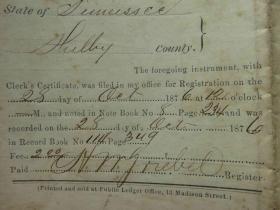 State of Tennessee
Shelby County.
The foregoing instrument, with
Clerk's Certificate, was filed in my office for Registration on the
28 day of Oct 1876 at o'clock
M., and noted in Note Book No. 8 Page 234 and was
recorded on the 28 day of Oct 1876
in Record Book No. 114 Page 349
Fee,
Paid Register
(Printed and sold at Public Ledger Office, 13 Madison Street.)